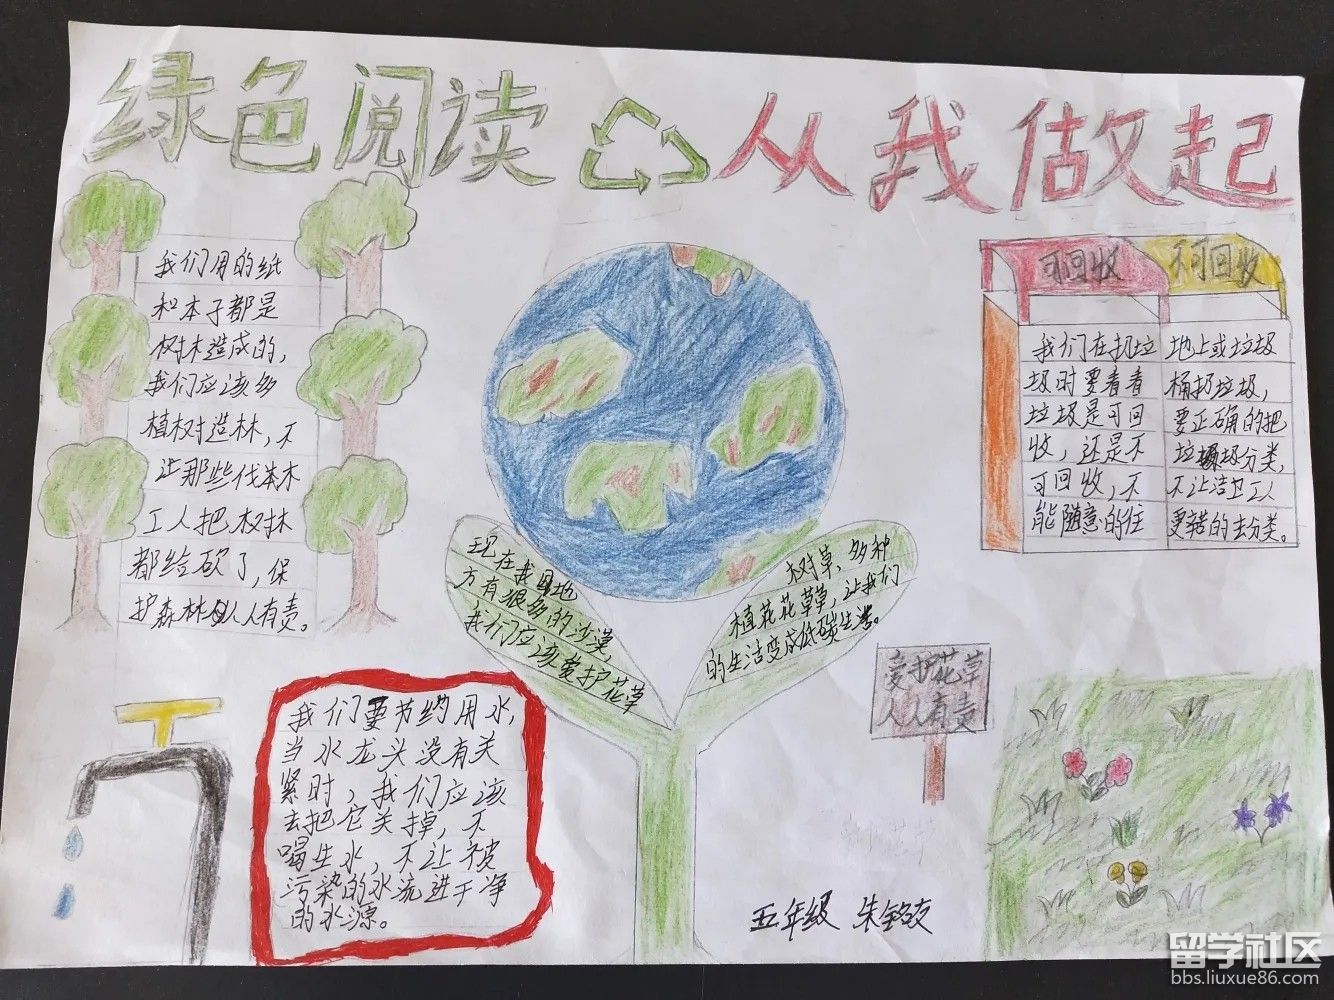 绿色阅读 从我做起
我们用的纸
和本子都是
树木造成的,
我们应该多
植树造林,不
让那些伐木
工人把树林
都给砍了,保
护森林人人有责。
可回收
不可回收
我们在扔垃
圾时要看看
垃圾是可回
收,还是不
可回收,不
能随意的往
地上或垃圾
桶扔垃圾,
要正确的把
垃圾分类,
不让洁卫工人
更辛苦的去分类。
现在我国地
方有很多的沙漠,
我们应该爱护花草
树草、多种
植花花草草,让我们
的生活变成低碳生活。
爱护花草
人人有责
我们要节约用水,
当水龙头没有关
紧时,我们应该
去把它关掉,不
喝生水,不让被
污染的水流进干净
的水源。
五年级 朱
留学社区
bbs.liuxue86.com